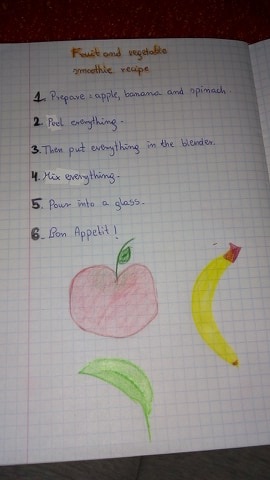 Fruit and vegetable
smoothie recipe
1. Prepare: apple, banana and spinach
2. Peel everything.
3. Then put everything in the blender.
4. Mix everything.
5. Pour into a glass.
6. Bon Appetit!